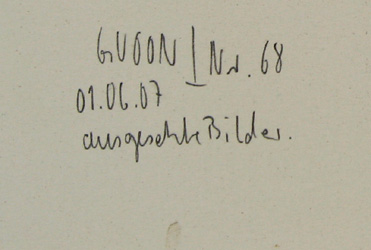 GUDON | Nr. 68
01.06.07
ausgesuchte Bilder.